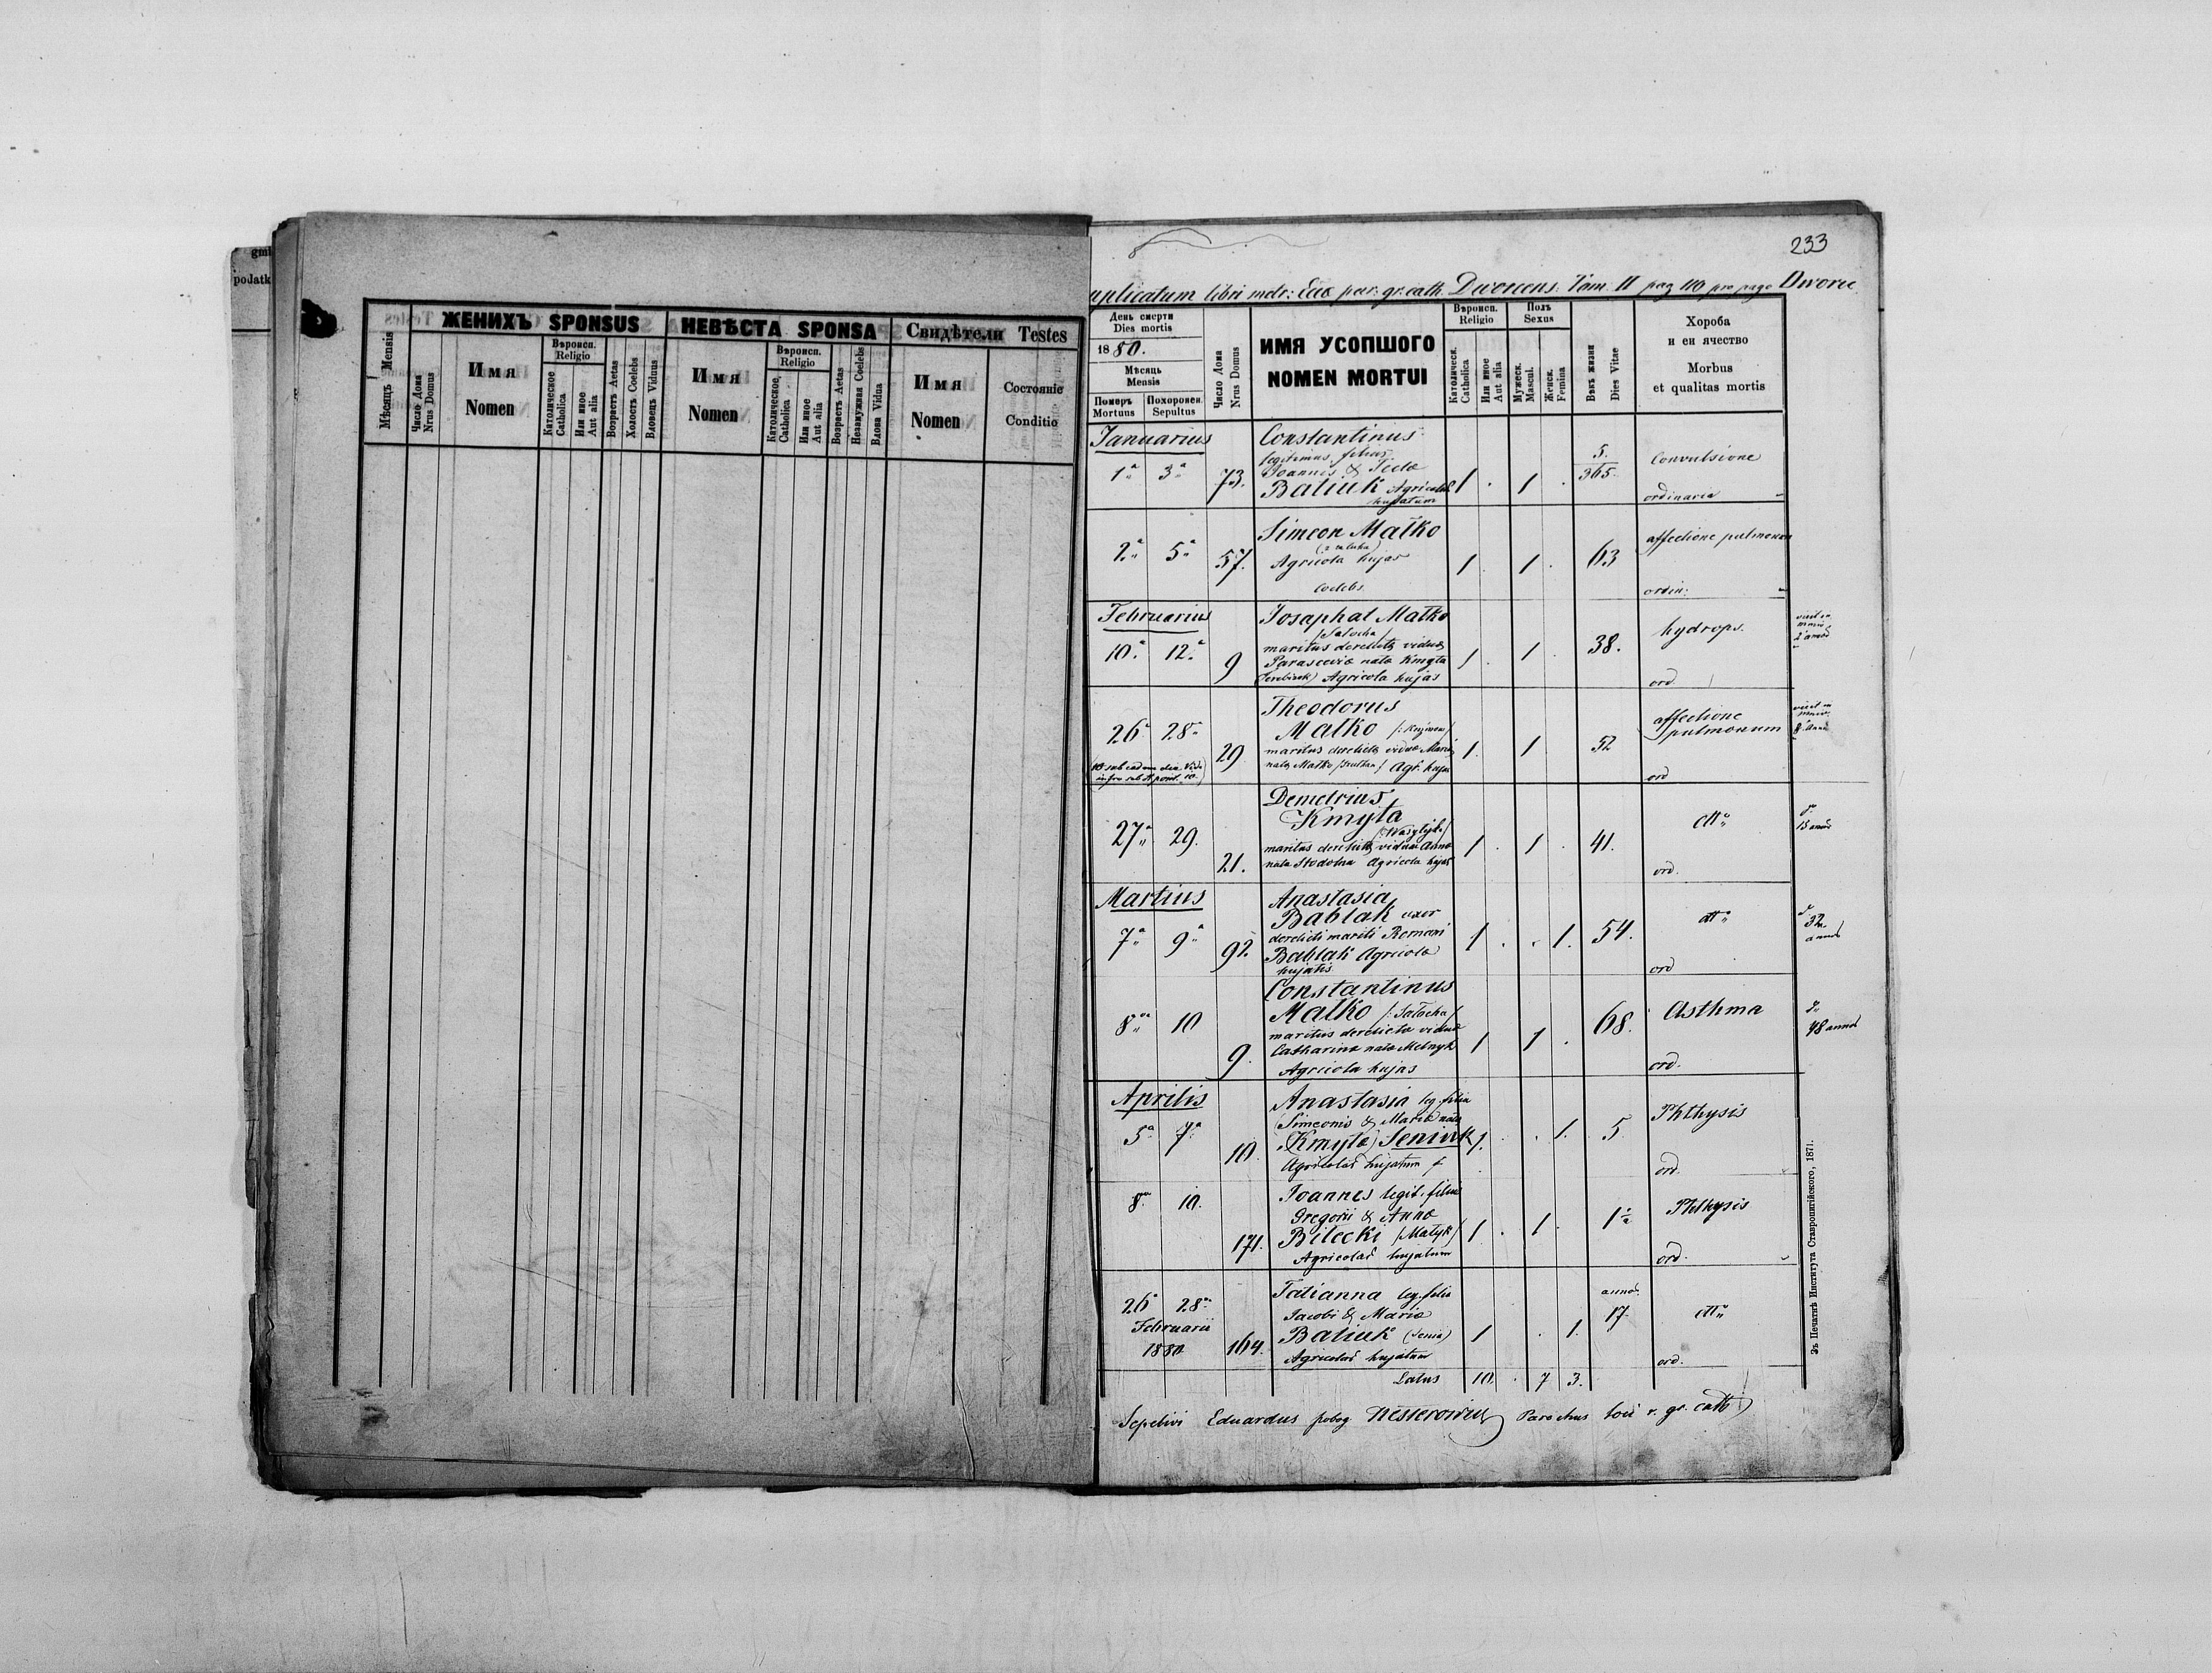 gmi
podatk
ЖЕНИХЪ SPONSUS
НЕВѢСТА SPONSA
Свидѣтели Testes
Мѣсяцъ Mensis
Число Дома
Nrus Domus
Имя
Nomen
Вѣроисп.
Religio
Католическое
Catholica
Или иное
Aut alia
Возрастъ Aetas
Холостъ Coelebs
Вдовецъ Viduus
Имя
Nomen
Вѣроисп.
Religio
Католическое,
Catholica
Или иное
Aut alia
Возрастъ Aetas
Незамужная Coelebs
Вдова Vidua
Имя
Nomen
Состояніе
Conditio
233
uplicatum libri metr: Ecc. par: gr. cath. Dworcens. Tom. II pag 110 pro pago Dworce
День смерти
Dies mortis
1880.
Мѣсяць
Mensis
Померъ
Mortuus
Похоронен.
Sepultus
Число Дома
Nrus Domus
ИМЯ УСОПШОГО
NOMEN MORTUI
Вѣроисп.
Religio
Католическ.
Catholica
Или иное
Aut alia
Полъ
Sexus
Мужеск.
Mascul.
Женск.
Femina
Вѣкъ жизни
Dies Vitae
Хороба
и еи ячество
Morbus
et qualitas mortis
Januarius
1a 3a 73.
Constantinus
legitimus filius
Joannis & Teclae
Batiuk Agricolar.
hujatum
1 . 1 . 5./365.
Convulsione
ordinaria
2a 5a 57.
Simeon Matko
Agricola hujas
Coelebs
1 . 1 . 63
affectione pulmonum
ordin:
Februarius
10.a 12.a 9
Josaphat Matko
/Satocha/
maritus derelictae viduae
Parasceviae natae Kmyta
Agricola hujas
1 . 1 . 38.
hydrops.
ord.
26a 28a 29.
Theodorus
Matko
maritus derelictae viduae Mariae
natae Matko Agr. hujas
1. 1 52
affectione
pulmonum
ord
27a 29. 21.
Demetrius
Kmyta
/:Wasylyk/
maritus derelictae viduae Annae
nata Stodolna Agricola hujas
1 . 1 . 41.
dtto
ord.
15 annos
Martius
7a 9a 92.
Anastasia
Bablak uxor
derelicti mariti Romani
Bablak Agricolae
hujatis
1 . . 1. 54.
dtto
ord
32
annos
8va 10 9.
Constantinus
Matko /:Satocha/
maritus derelictae viduae
Catharinae natae Melnyk
Agricola hujas
1 1 . 68.
Asthma
ord.
48 annos
Aprilis
5a 7a 10
Anastasia leg. filia
Simeonis & Mariae natae
(Kmyta) Seniuk
Agricolar. hujatum
1. . 1. 5
Phthysis
ord.
8va 10. 171.
Joannes legit. filius
Gregorii & Annae
Bilecki /Matyk/
Agricolar. hujatum
1 . 1 . 1½
Phthysis
ord.
26a 28a
Februarii
1880 164.
Tatianna leg. filia
Jacobi & Mariae
Batiuk (Senia)
Agricolar. hujatum
1 . 1.
annor.
17.
dtto
ord.
Latus 10. . 7 3.
Sepelivi Eduardus Nesterowicz Parochus loci r. gr. cath
Зъ Печатнѣ Института Ставропигійского, 1871.